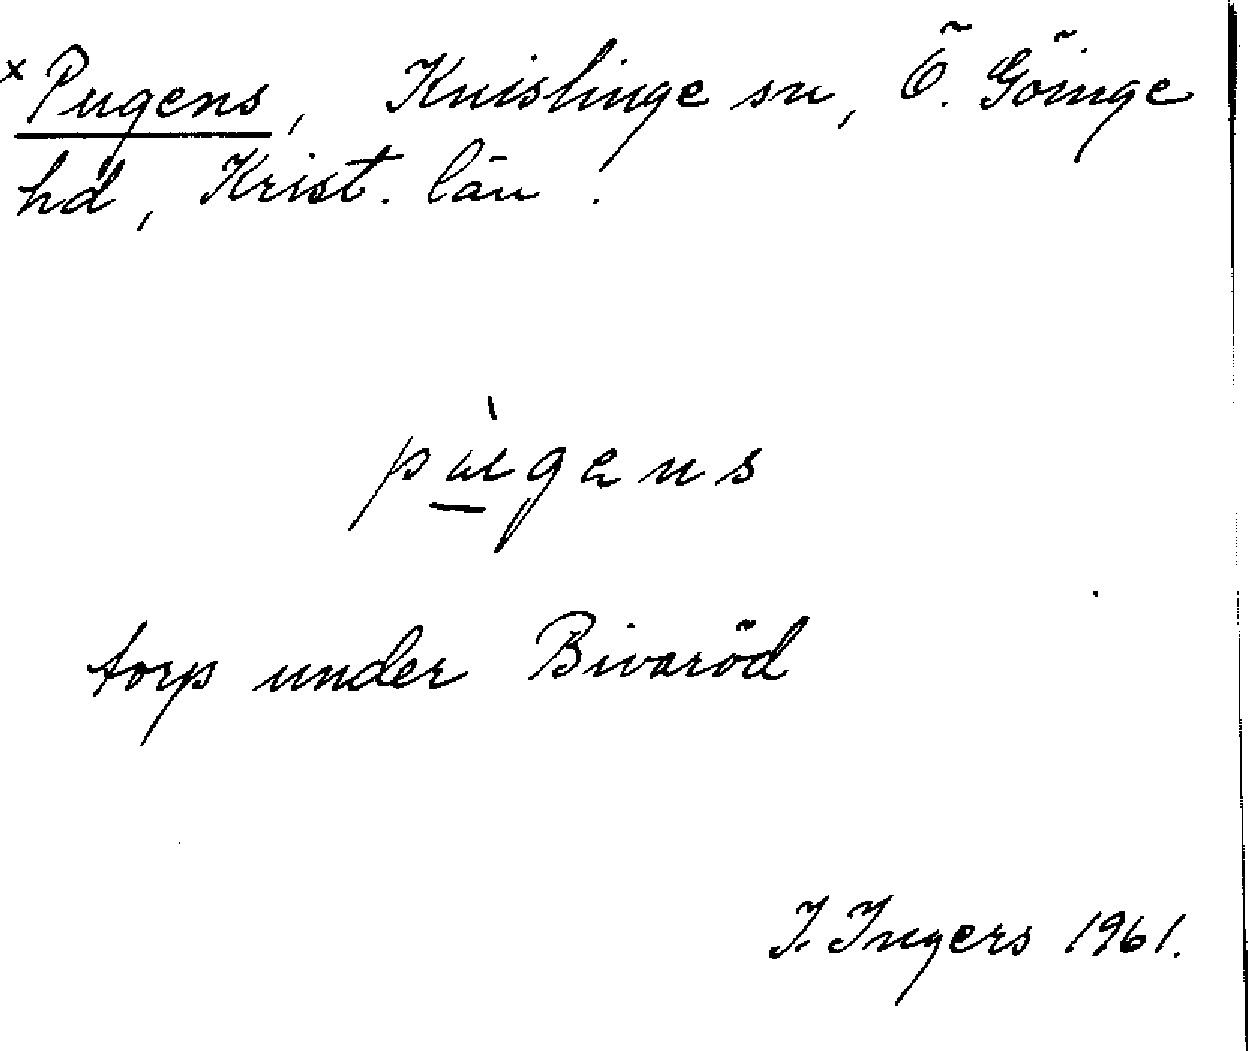 x Pugens, Knislinge sn, Ö. Göinge
hd, Krist. län.
pùgens
torp under Bivaröd
I. Ingers 1961.